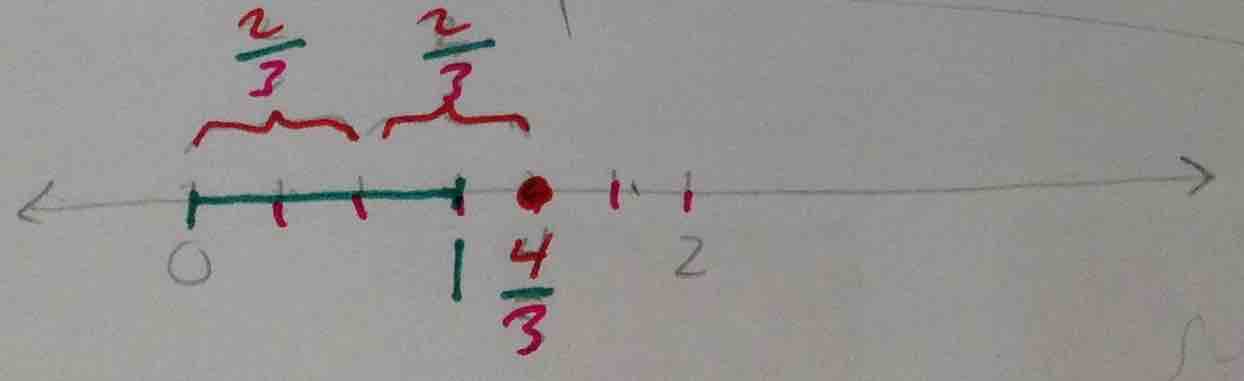 2/3 2/3
0 1 4/3 2